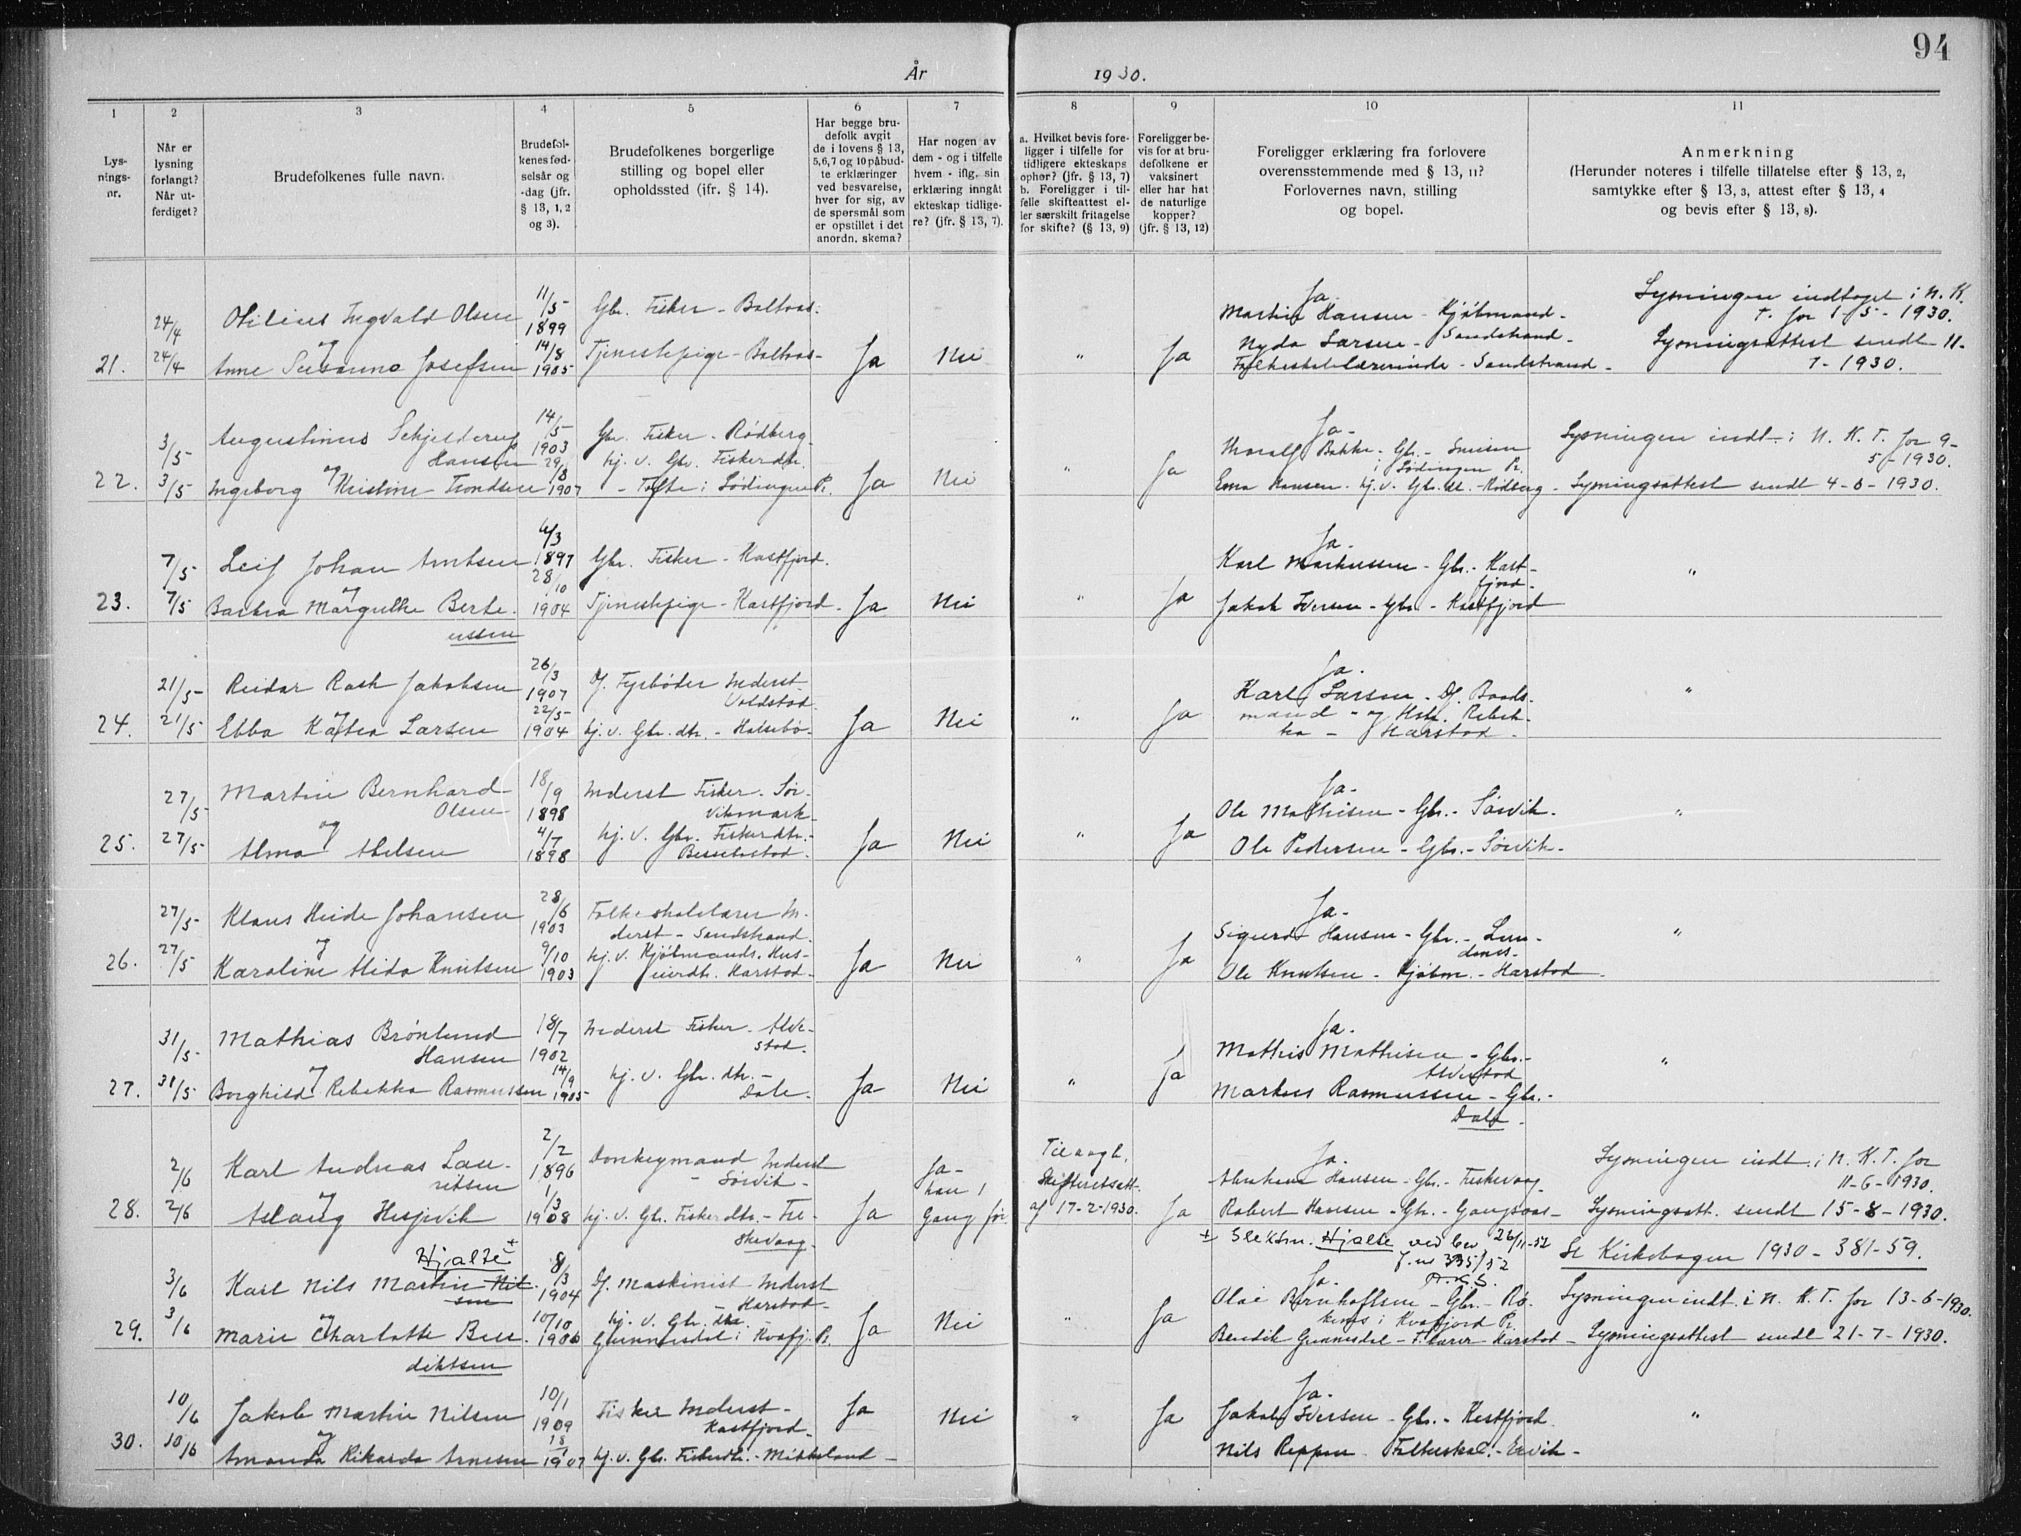 94
År 1930.
1 2 3 4 5 6 7 8 9 10 11
Lys-
nings-
nr.
Når er
lysning
forlangt?
Når ut-
ferdiget?
Brudefolkenes fulle navn.
Brudefol-
kenes fød-
selsår og
-dag (jfr.
§ 13, 1, 2
og 3).
Brudefolkenes borgerlige
stilling og bopel eller
opholdssted (ifr. § 14).
Har begge bru-
defolk avgit
de i lovens § 13,
5,6,7 og 10 påbud-
te erklæringer
ved besvarelse,
hver for sig, av
de spørsmål som
er opstillet i det
anordn. skema?
Har nogen av
dem - og i tilfelle
hvem - iflg. sin
erklæring inngått
ekteskap tidlige-
re? (jfr. § 13, 7).
a. Hvilket bevis fore-
ligger i tilfelle for
tidligere ekteskaps
ophør? (jfr. § 13, 7)
b. Foreligger i til-
felle skifteattest el-
ler særskilt fritagelse
for skifte? (§ 13, 9)
Foreligger be-
vis for at bru-
defolkene er
vaksinert
eller har hat
de naturlige
kopper?
(jfr. § 13, 12)
Foreligger erklæring fra forlovere
overensstemmende med § 13, 11?
Forlovernes navn, stilling
og bopel.
Anmerkning
(Herunder noteres i tilfelle tillatelse efter § 13, 2,
samtykke efter § 13, 3, attest efter § 13, 4
og bevis efter § 13, 8).
21.
24/4
24/4
Otilius Ingvald Olsen
og
Anne Susanna Josefsen
11/5
1899
14/8
1905
Gbr. Fisker - Baltraas.
Tjenestepige - Baltraas-
Ja
Nei
"
Ja
Ja.
Martin Hansen - Kjøbmand -
Sandstrand -
Nyda Larsen -
Folkeskolelærerinde - Sandstrand -
Lysningen indtaget i N. K.
T. for 1-5-1930.
Lysningsattest sendt 11-
7-1930.
22.
3/5
3/5
Augustinus Schjelderup
Hansen
og
Ingeborg Kristine Trondsen
14/5
1903
29/8
1907
Gbr. Fisker - Rødberg
hj. v. Gbr. Fiskerdtr.
- Tofte i Lødingen P.
Ja
Nei
"
Ja
Ja -
Bakke - Gbr. -
i Lødingen P.
Ema Hansen - hj. v. Gbr. dt. - Rødberg -
Lysningen indt. i N. K. T. for 9-
5-1930.
Lysningsattest sendt 4-6-1930.
23.
7/5
7/5
Leif Johan Arntsen
og
Barbra Margrethe Berte-
ussen
4/3
1897
28/10
1904
Gbr. Fisker - Kastfjord.
Tjenestepige - Kastfjord.
Ja
Nei
"
Ja
Ja.
Karl Markussen - Gbr. - Kast-
fjord -
Jakob Iversen - Gbr. - Kastfjord
"
24.
21/5
21/5
Reidar Rask Jakobsen
og
Ebba Katra Larsen
26/3
1907
22/5
1904
Df. Fyrbøder Inderst
Voldstad.
hj. v. Gbr. dtr. - Halsebø-
Ja
Nei
"
Ja
Ja.
Karl Larsen - Df. Baads-
mand - og Hstr. Rebek-
ka - Harstad -
"
25.
27/5
27/5
Martin Bernhard
Olsen
og
Alma Abelsen
18/9
1898
4/7
1898
Inderst Fisker - Sør-
vikmark -
hj. v. Gbr. Fiskerdtr. -
Bessebostad -
Ja
Nei
"
Ja
Ja -
Ole Mathisen - Gbr. - Sørvik -
Ole Pedersen - Gbr. - Sørvik -
"
26.
27/5
27/5
Klaus Heide Johansen
og
Karoline Alida Knutsen
28/6
1903
9/10
1903
Folkeskolelærer In-
derst - Sandstrand.
hj. v. Kjøbmands. Hus-
eierdtr. Harstad -
Ja
Nei
"
Ja
Ja -
Sigurd Hansen - Gbr. - Lun-
denes -
Ole Knutsen - Kjøbm. - Harstad -
"
27.
31/5
31/5
Mathias Brønlund
Hansen
og
Borghild Rebekka Rasmussen
18/7
1902
14/9
1905
Inderst Fisker - Alve-
stad.
hj. v. Gbr. dtr. -
Dale -
Ja
Nei
"
Ja
Ja -
Mathis Mathisen - Gbr. -
Alvestad
Markus Rasmussen - Gbr. -
Dale -
"
28.
2/6
2/6
Karl Andreas Lau-
ritsen
og
Aslaug Hesjevik
2/2
1896
1/3
1908
Donkeymand Inderst
- Sørvik -
hj. v. Gbr. Fiskerdtr. - Fi-
skevaag -
Ja
Ja -
han 1
Gang før
Til aagl.
Skifteretsatt.
af 17-2-1930.
Ja
Ja.
Abraham Hansen - Gbr. - Fiskevaag -
Robert Hansen - Gbr. - Gangsaas -
Lysningen indt. i N. K. T. for
11-6-1930.
Lysningsatt. sendt 15-8-1930.
Se Kirkebogen 1930 - 381-59.
± Slektsn. Hjalte ved bev 26/11-52
J. nr 335/52
29.
3/6
3/6
Hjalte ±
Karl Nils Martin Nil-
sen
og
Marie Charlotte Bene-
diktsen
8/3
1904
10/10
1906
Df. Maskinist Inderst
- Harstad -
hj. v. Gbr. dtr. -
Gunnesdal i Kvæfj. P.
Ja
Nei
"
Ja
Ja -
Olai Bernhoftsen - Gbr. - Rø-
kenes i Kvæfjord P.
Bendik Gunnesdal - F. lærer Harstad -
Lysningen indt. i N. K. T. for 13-6-1930.
Lysningsattest sendt 21-7-1930.
30.
10/6
10/6
Jakob Martin Nilsen
og
Amanda Rikarda Arnesen
10/1
1909
18/1
1907
Fisker Inderst -
Kastfjord -
hj. v. Gbr. Fiskerdtr. - Mikkeland -
Ja
Nei
"
Ja
Ja -
Jakob Iversen - Gbr. - Kastfjord
Nils Reppen - Folkeskol. - Ervik -
"